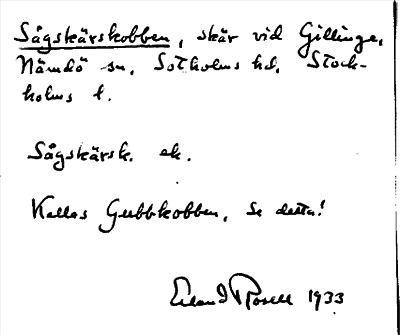 Sågskärskobben, skär vid Gillinge,
Nämdö sn, Sotholms hd. Stock-
holms l.
Sågskärsk. ek.
Kallas Gubbkobben, Se detta!
Erland Rosell 1933